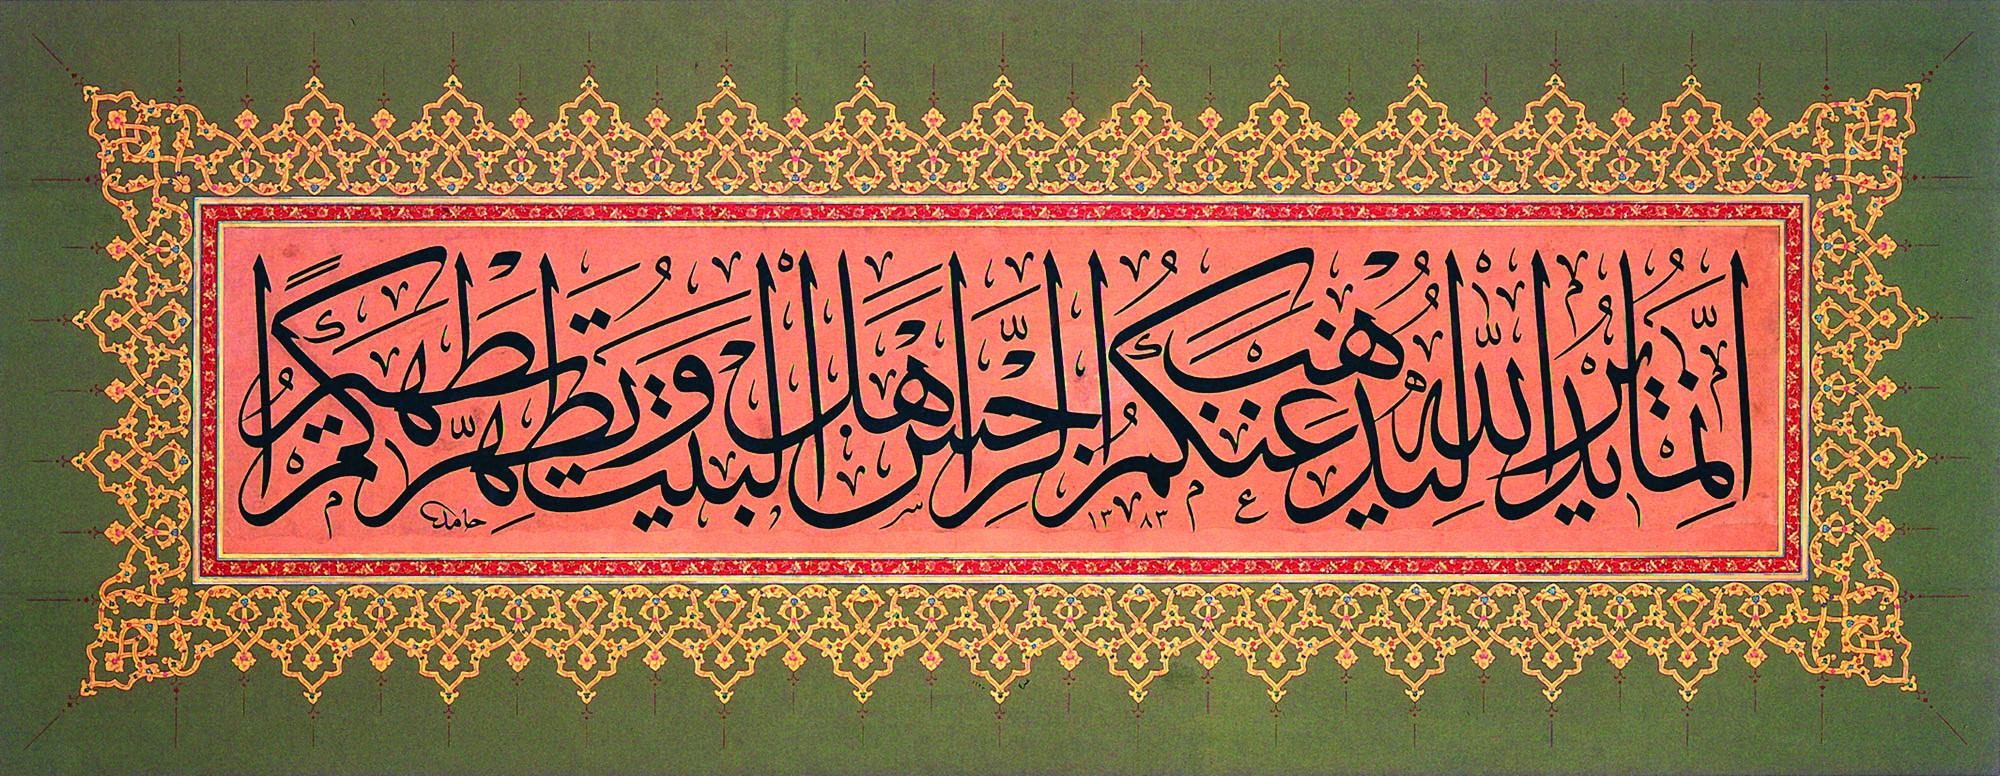 إِنَّمَا يُرِيدُ اللَّهُ لِيُذْهِبَ عَنْكُمُ الرِّجْسَ أَهْلَ الْبَيْتِ وَيُطَهِّرَكُمْ تَطْهِيرًا
حامد
١٣٨٣